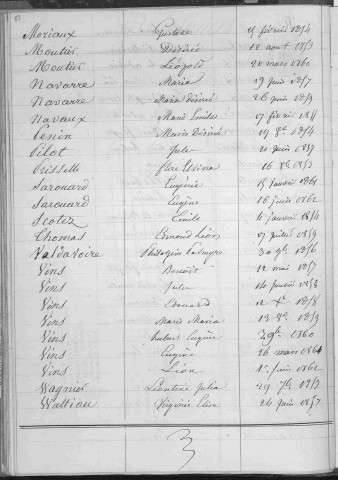 Moriaux Gustave 15 février 1854
Moutier Désirée 18 aout 1853
Moutier Léopold 20 mars 1860
Navarre Maria 29 juin 1857
Navarre Maria Désiré 26 juin 1859
Navaux Marie Emilie 17 février
Penin Marie Désiré 19 8bre 1854
Pilot Jules 21 juin 1857
Prissette Flore 16 8bre 1853
Sarouard Eugénie 15 janvier 1861
Sarouard Eugène 16 juin 1862
Scotez Emile 4 janvier 1854
Thomas Edmond Léon 17 juillet 1859
Valdavoire Philogène 30 9bre 1856
Vins Benoit 12 mai 1857
Vins Jules 14 janvier 1858
Vins Edouard 12 1858
Vins Marie Maria 13 8bre 1859
Vins Hubert Eugène 3 9bre 1860
Vins Eugène 26 mars 1861
Vins Léon 1er juin 1862
Wagnier Léontine Julia 29 7bre 1853
Wattiau Virginie Elise 24 juin 1857
3